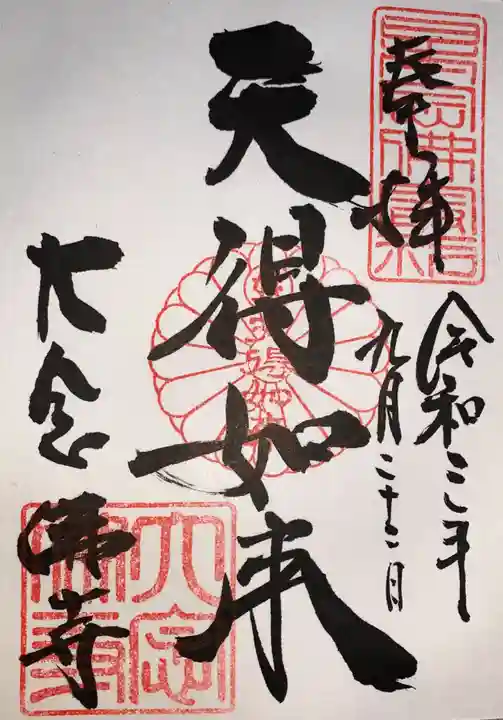 奉拝
令和三年
九月二十二日
天得如来
大念佛寺
大念
佛寺